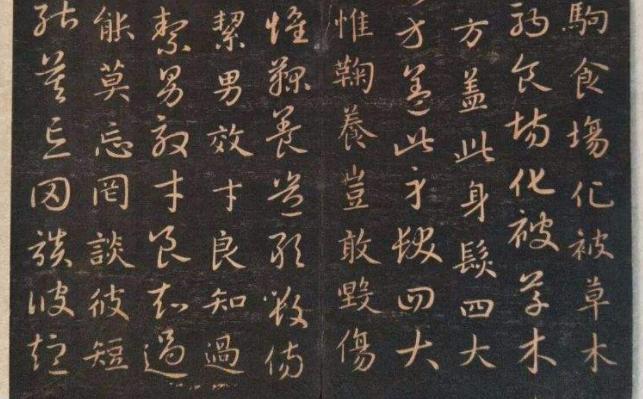 駒食塲化被草木
駒食塲化被草木
方蓋此身髮四大
方蓋此身髮四大
惟鞠養豈敢毀傷
惟鞠養豈敢毀傷
絜男效才良知過
絜男效才良知過
能莫忘罔談彼短
能莫忘罔談彼短